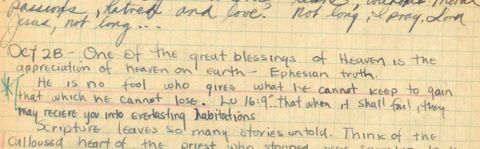 passions, hatred and love? Not long, I pray, Lord
Jesus, not long...
OCT 28 - One of the great blessings of Heaven is the
appreciation of heaven on earth - Ephesian truth.
He is no fool who gives what he cannot keep to gain
that which he cannot lose. Lu 16:9 "that when it shall fail, they
may recieve you into everlasting habitations
Scripture leaves so many stories untold. Think of the
calloused heart of the priest who